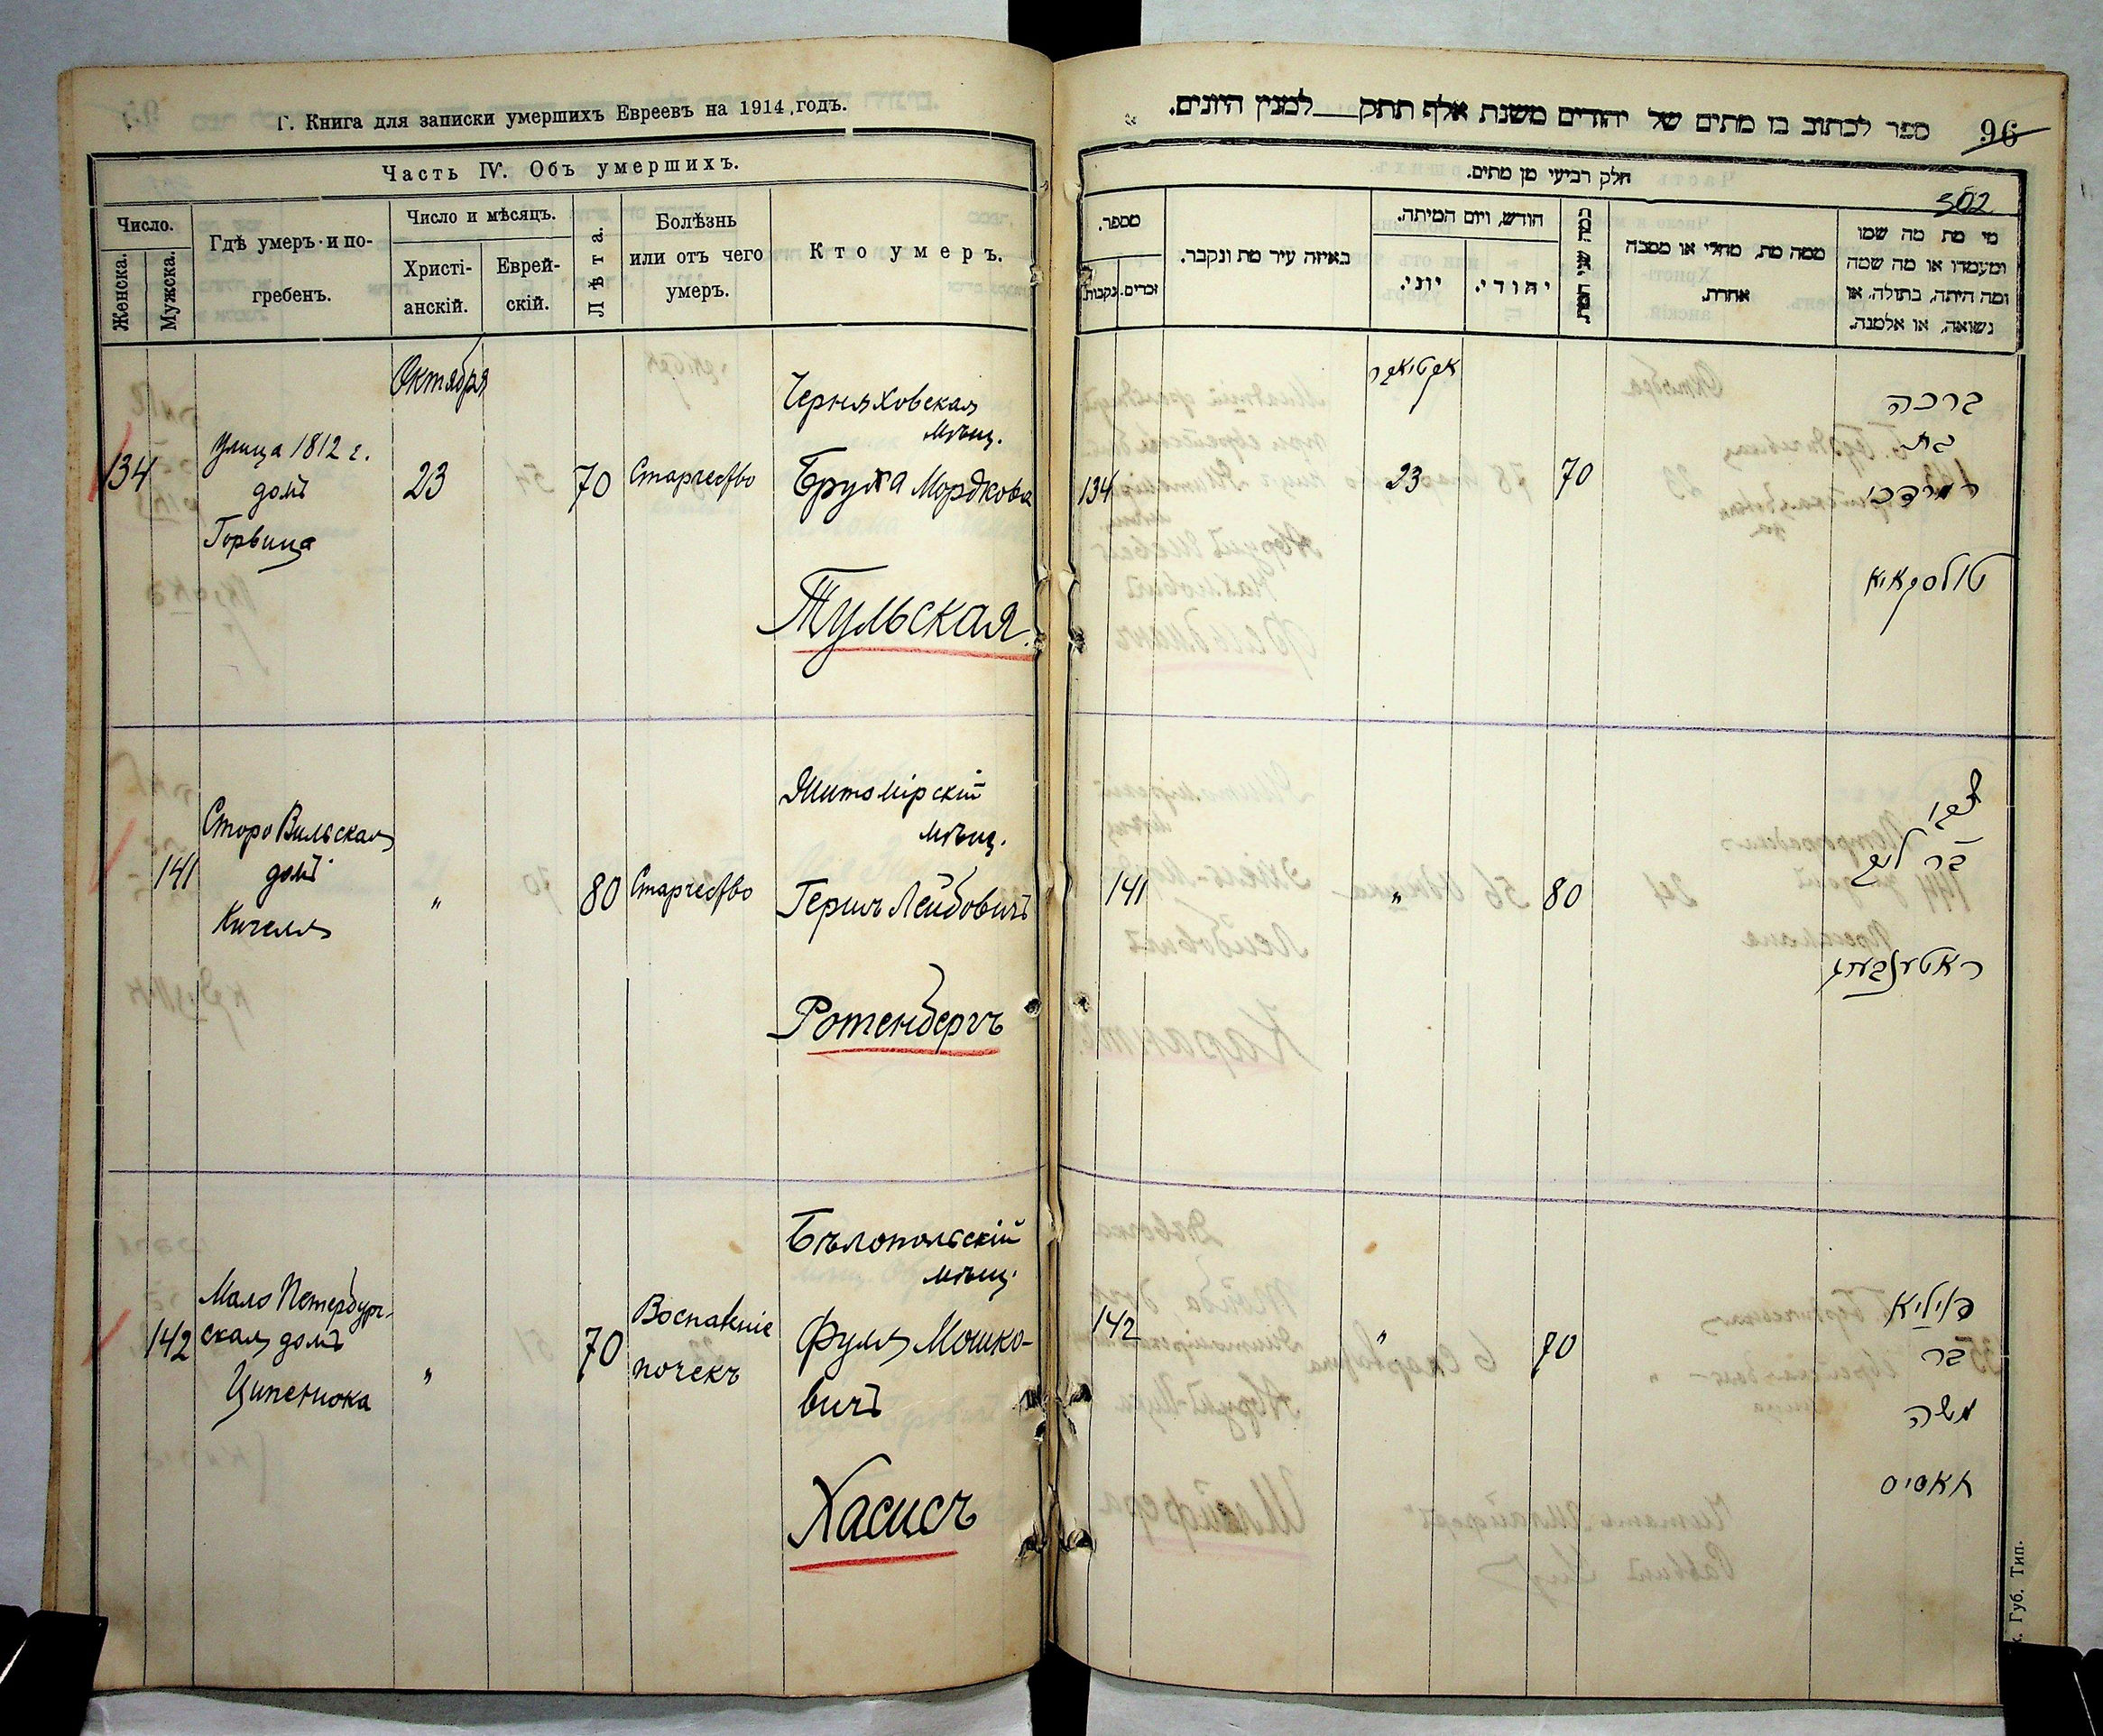 Г. Книга для записки умершихъ Евреевъ на 1914 годъ.
Часть IV. Объ умершихъ.
Число.
Женска.
Мужска.
Гдѣ умеръ и по-
гребенъ.
Число и мѣсяцъ.
Христі-
анскій.
Еврей-
скій.
Лѣта.
Болѣзнь
или отъ чего
умеръ.
Кто умеръ.
Октября
134
улица 1812 г.
домъ
Горвица
23
70
Старчество
Черняховская
мѣщ.
Бруха Мордкова
Тульская.
141
Старо Вильская
домъ
Кичеля
"
80
Старчество
Житомірскій
мѣщ.
Гершъ Лейбовичъ
Ротенбергъ
142
Мало Петербург-
ская домъ
Ципенюка
"
70
Воспаленіе
почекъ
Бѣлопольскій
мѣщ.
Фуля Мошко-
вичъ
Хасисъ
ספר לכתוב בו מתים של יהודים משנת אלף תתק למנין היונים.
96
302
חלק רביעי מן מתים.
מספר.
נקבות.
זכרים.
באיזה עיר מת ונקבר.
חודש, ויום המיתה.
יוני.
יהודי.
כמה שני המת.
ממה מת, מחלי או מסבה
אחרת.
מי מת מה שמו
ומעמדו או מה שמה
ומה היתה, בתולה, או
נשואה, או אלמנה.
אקטיאבר
134
23
70
ברכה
בת
מרדכי
טולסקאיא
141
"
80
צבי
בר ליב
ראטענבערג
142
"
70
פוליא
בר
משה
חאסיס
Губ. Тип.